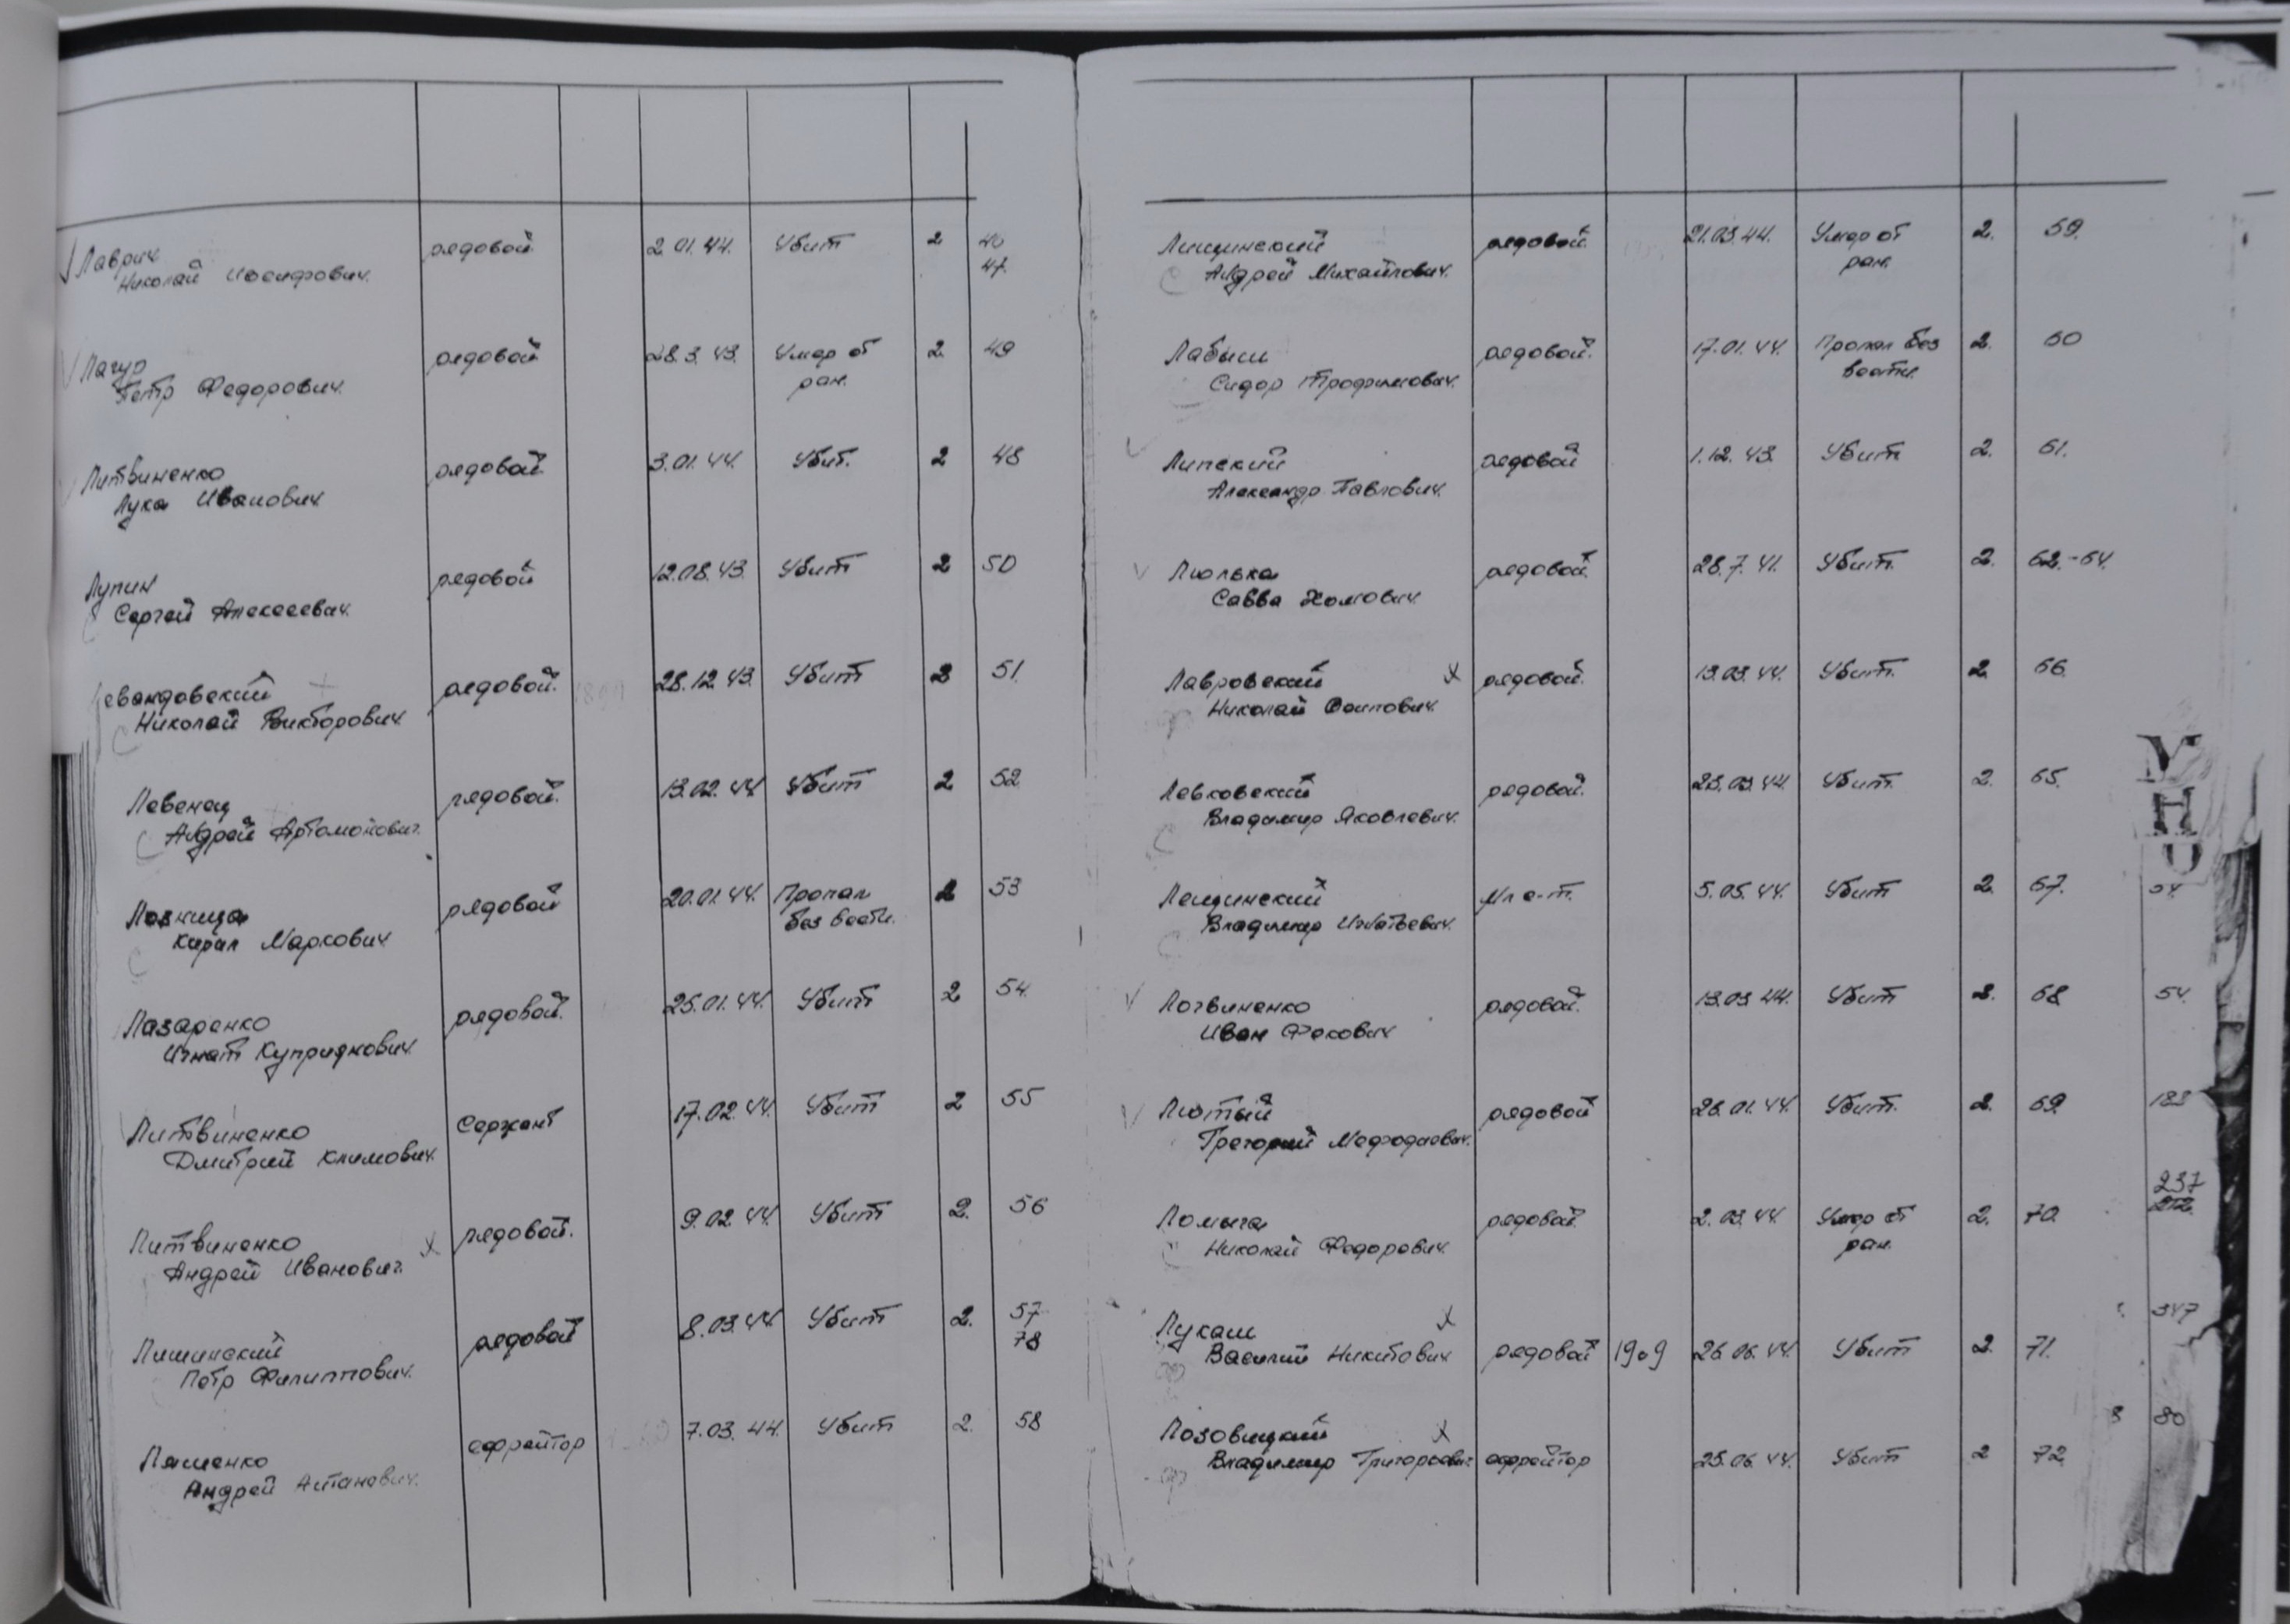 Лаврик рядовой 2.01.44. Убит 2 40
Николай Иосифович. 47.
Лагур рядовой 28.3.43. Умер от 2. 49
Петр Федорович. ран.
Литвиненко рядовой 3.01.44. Убит. 2 48
Лука Иванович.
Лупин рядовой 12.08.43. Убит 2 50
Сергей Алексеевич.
евандовский рядовой. 28.12.43. Убит 2 51.
Николай Викторович.
Левенец рядовой. 13.02.44. Убит 2 52
Андрей Артомонович.
рядовой 20.01.44. Пропал 2 53
Маркович. без вести.
Лазаренко рядовой. 25.01.44. Убит 2 54.
Игнат Куприянович.
Литвиненко Сержант 17.02.44. Убит 2 55
Дмитрий Климович.
Литвиненко х рядовой. 9.02.44. Убит 2. 56
Андрей Иванович.
Лишинский рядовой 8.03.44 Убит 2. 57
Петр Филиппович. 78
Ляшенко ефрейтор 7.03.44. Убит 2. 58
Андрей
Лищинский рядовой. 21.03.44. Умер от 2. 59.
Андрей Михайлович. ран.
Лабыш рядовой. 17.01.44. Пропал без 2. 60
Сидор Трофимович. вести.
Липский рядовой 1.12.43. Убит 2. 61.
Александр Павлович.
Люлька рядовой. 28.7.41. Убит. 2. 62.-64.
Савва Хомович.
Лавровский х рядовой. 13.03.44. Убит. 2. 66.
Николай Осипович.
Левковский рядовой. 23.03.44. Убит. 2. 65.
Владимир Яковлевич.
Лещинский Мл с-т. 5.05.44. Убит 2. 67.
Владимир Игнатьевич.
Логвиненко рядовой. 13.03.44. Убит 2. 68 54.
Иван Фокович
Лютый рядовой 26.01.44. Убит. 2. 69.
Григорий Мефодиевич.
237
Ломыга рядовой. 2.03.44. Умер от 2. 70. 212.
Николай Федорович. ран.
Лукаш х 347
Василий Никитович рядовой 1909 26.06.44. Убит 2. 71.
Лозовицкий х 80
Владимир Григорьевич ефрейтор 25.06.44. Убит 2 72.